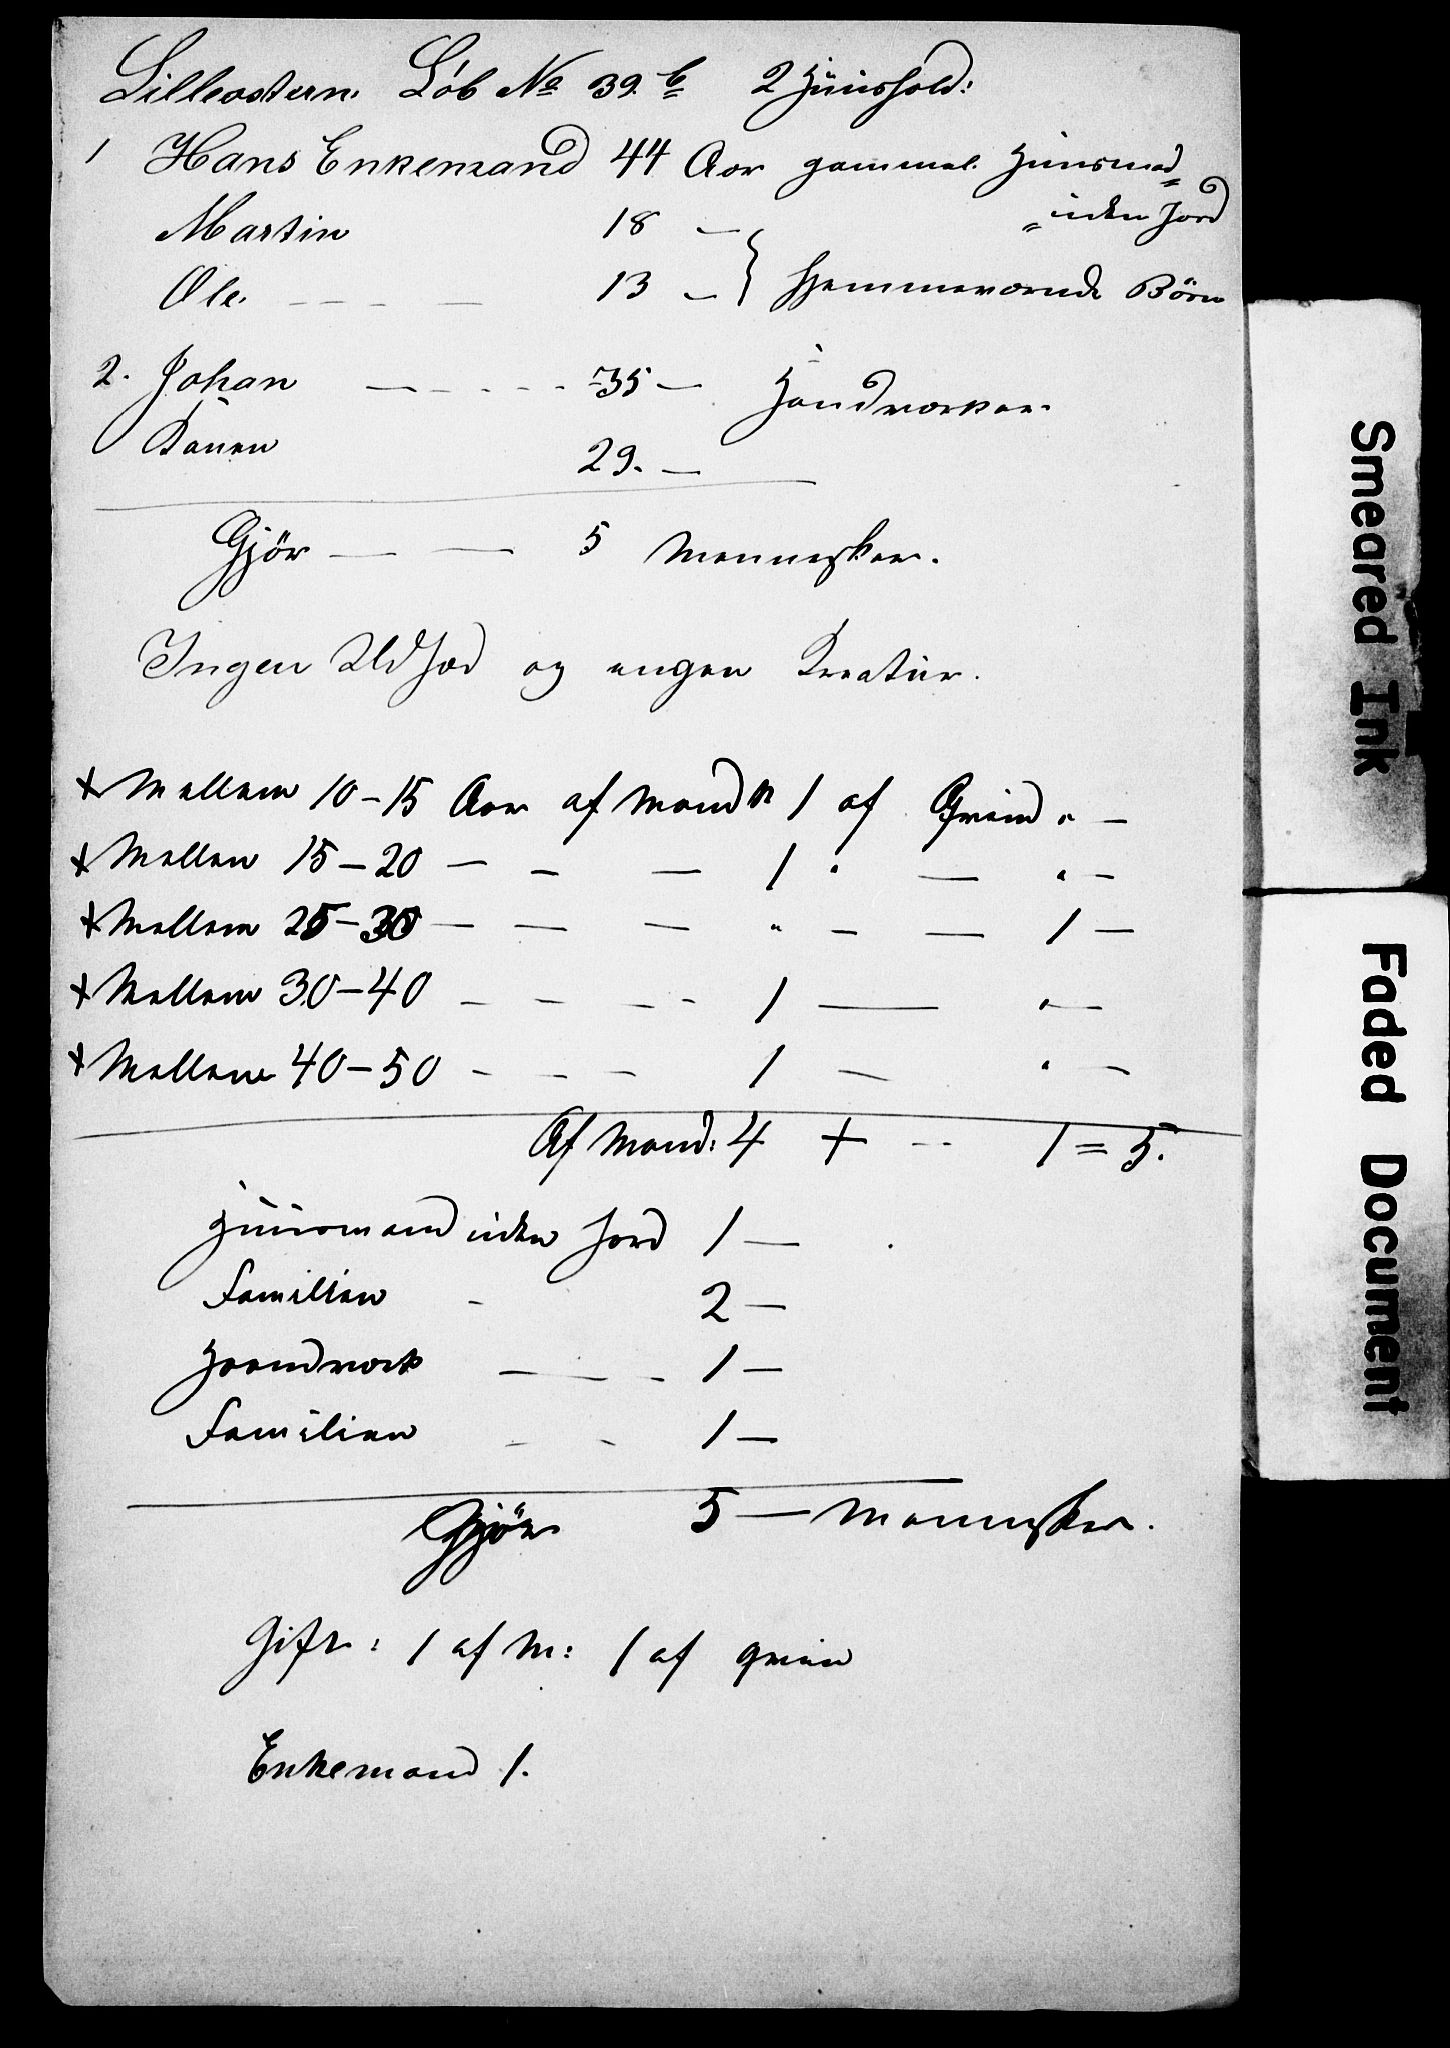 Lilleostern. Löb No 39. b 2 Huushold:
1 Hans Enkemand 44 Aar gammel. Huusmad
Martin 18 — uden Jord
Ole. — — — — 13 — } Hjemmeværende Börn
2. Johan — — - - - 35 — Handværker
Konen 29. —
Gjör — — 5 Mennesker.
Ingen Udsæd og ingen Kreatur.
+ Mellem 10-15 Aar af Mandk 1 af Qvind " —
+ Mellem 15-20 — — — 1 " — " —
+ Mellem 25-30 — — — " — — 1 —
+ Mellem 30-40 — — — - 1 — " —
+ Mellem 40-50 - — — 1 — " —
Af Mand: 4 + -- 1 = 5.
Huusmand uden Jord 1 —
Familien - 2 —
Haandværk — — - 1 —
Familien - - 1 —
Gjör 5 — Mennesker.
Gift: 1 af M: 1 af qvin
Enkemand 1.
Smeared Ink
Faded Document